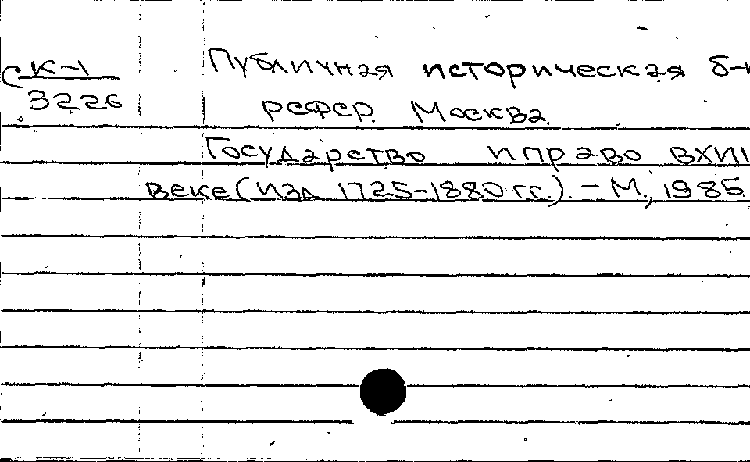 сК-1
3226
Публичная историческая б-
РСФСР Москва
Государство и право в XVIII
веке (изд. 1725-1880 гг.). - М., 1985